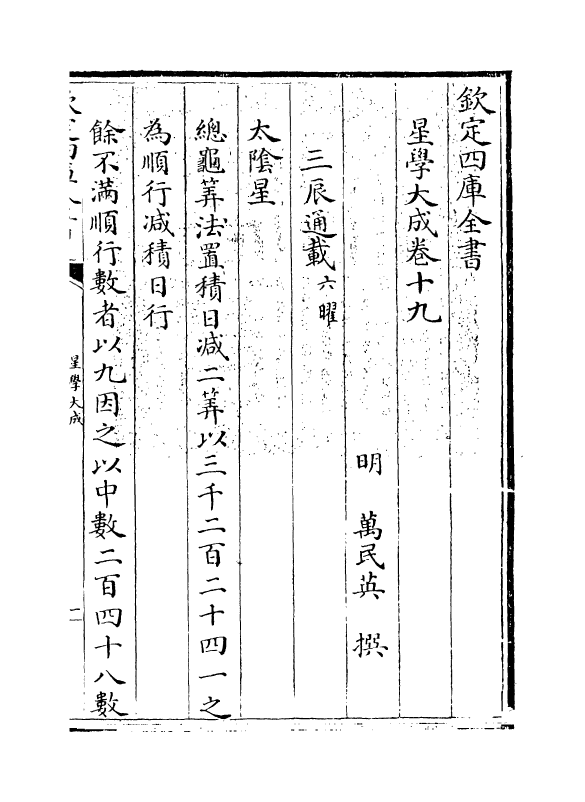 欽定四庫全書
星學大成卷十九
明 萬民英 撰
三辰通載六曜
太陰星
總龜筭法置積日減二筭以三千二百二十四一之
為順行減積日行
餘不滿順行數者以九因之以中數二百四十八數
星學大成